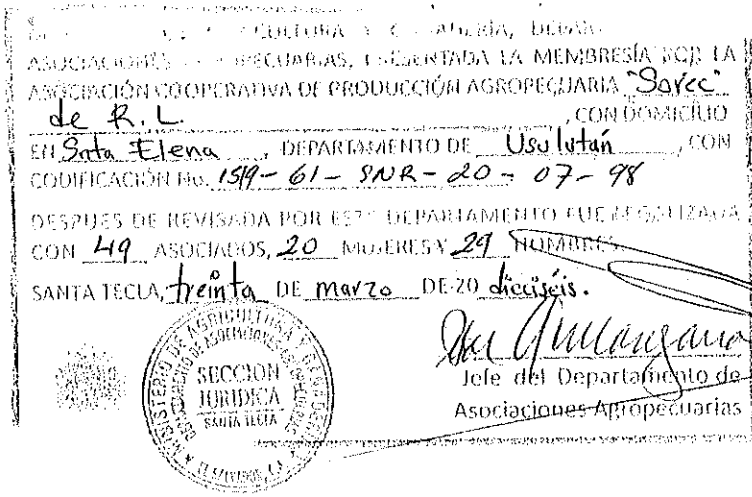 ASOCIACIONES AGROPECUARIAS, PRESENTADA LA MEMBRESÍA POR LA
ASOCIACIÓN COOPERATIVA DE PRODUCCIÓN AGROPECUARIA "Sarec"
de R.L. , CON DOMICILIO
EN Snta Elena , DEPARTAMENTO DE Usulután , CON
CODIFICACIÓN No. 1519-61-SNR-20-07-98
DESPUES DE REVISADA POR ESTE DEPARTAMENTO FUE LEGALIZADA
CON 49 ASOCIADOS, 20 MUJERES Y 29 HOMBRES.
SANTA TECLA, treinta DE marzo DE 20 dieciséis.
MINISTERIO DE AGRICULTURA Y GANADERIA
DEPARTAMENTO DE ASOCIACIONES AGROPECUARIAS
SECCION
JURIDICA
SANTA TECLA
EL SALVADOR, C.A.
Jefe del Departamento de
Asociaciones Agropecuarias